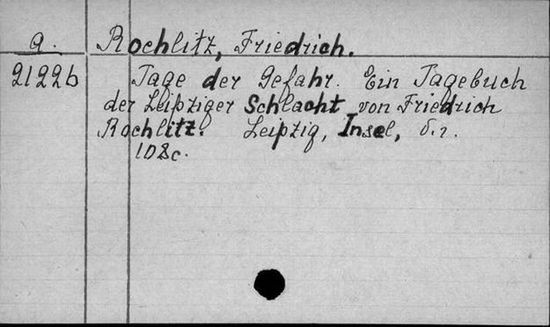 a. Rochlitz, Friedrich.
2122b Tage der Gefahr. Ein Tagebuch
der Leipziger Schlacht von Friedrich
Rochlitz. Leipzig, Insel,
108c.